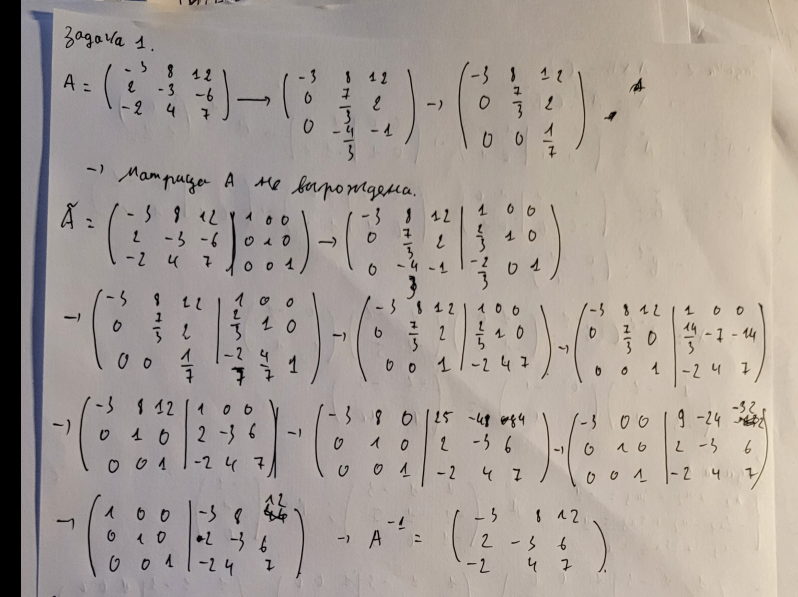 Задача 1.
A = ( -3 8 12 ; 2 -3 -6 ; -2 4 7 ) → ( -3 8 12 ; 0 7/3 2 ; 0 -4/3 -1 ) → ( -3 8 12 ; 0 7/3 2 ; 0 0 1/7 )
→ матрица A не вырождена.
Ã = ( -3 8 12 | 1 0 0 ; 2 -3 -6 | 0 1 0 ; -2 4 7 | 0 0 1 ) → ( -3 8 12 | 1 0 0 ; 0 7/3 2 | 2/3 1 0 ; 0 -4/3 -1 | -2/3 0 1 )
→ ( -3 8 12 | 1 0 0 ; 0 7/3 2 | 2/3 1 0 ; 0 0 1/7 | -2/7 4/7 1 ) → ( -3 8 12 | 1 0 0 ; 0 7/3 2 | 2/3 1 0 ; 0 0 1 | -2 4 7 ) → ( -3 8 12 | 1 0 0 ; 0 7/3 0 | 14/3 -7 -14 ; 0 0 1 | -2 4 7 )
→ ( -3 8 12 | 1 0 0 ; 0 1 0 | 2 -3 6 ; 0 0 1 | -2 4 7 ) → ( -3 8 0 | 25 -48 -84 ; 0 1 0 | 2 -3 6 ; 0 0 1 | -2 4 7 ) → ( -3 0 0 | 9 -24 -32 ; 0 1 0 | 2 -3 6 ; 0 0 1 | -2 4 7 )
→ ( 1 0 0 | -3 8 12 ; 0 1 0 | 2 -3 6 ; 0 0 1 | -2 4 7 ) → A⁻¹ = ( -3 8 12 ; 2 -3 6 ; -2 4 7 ).